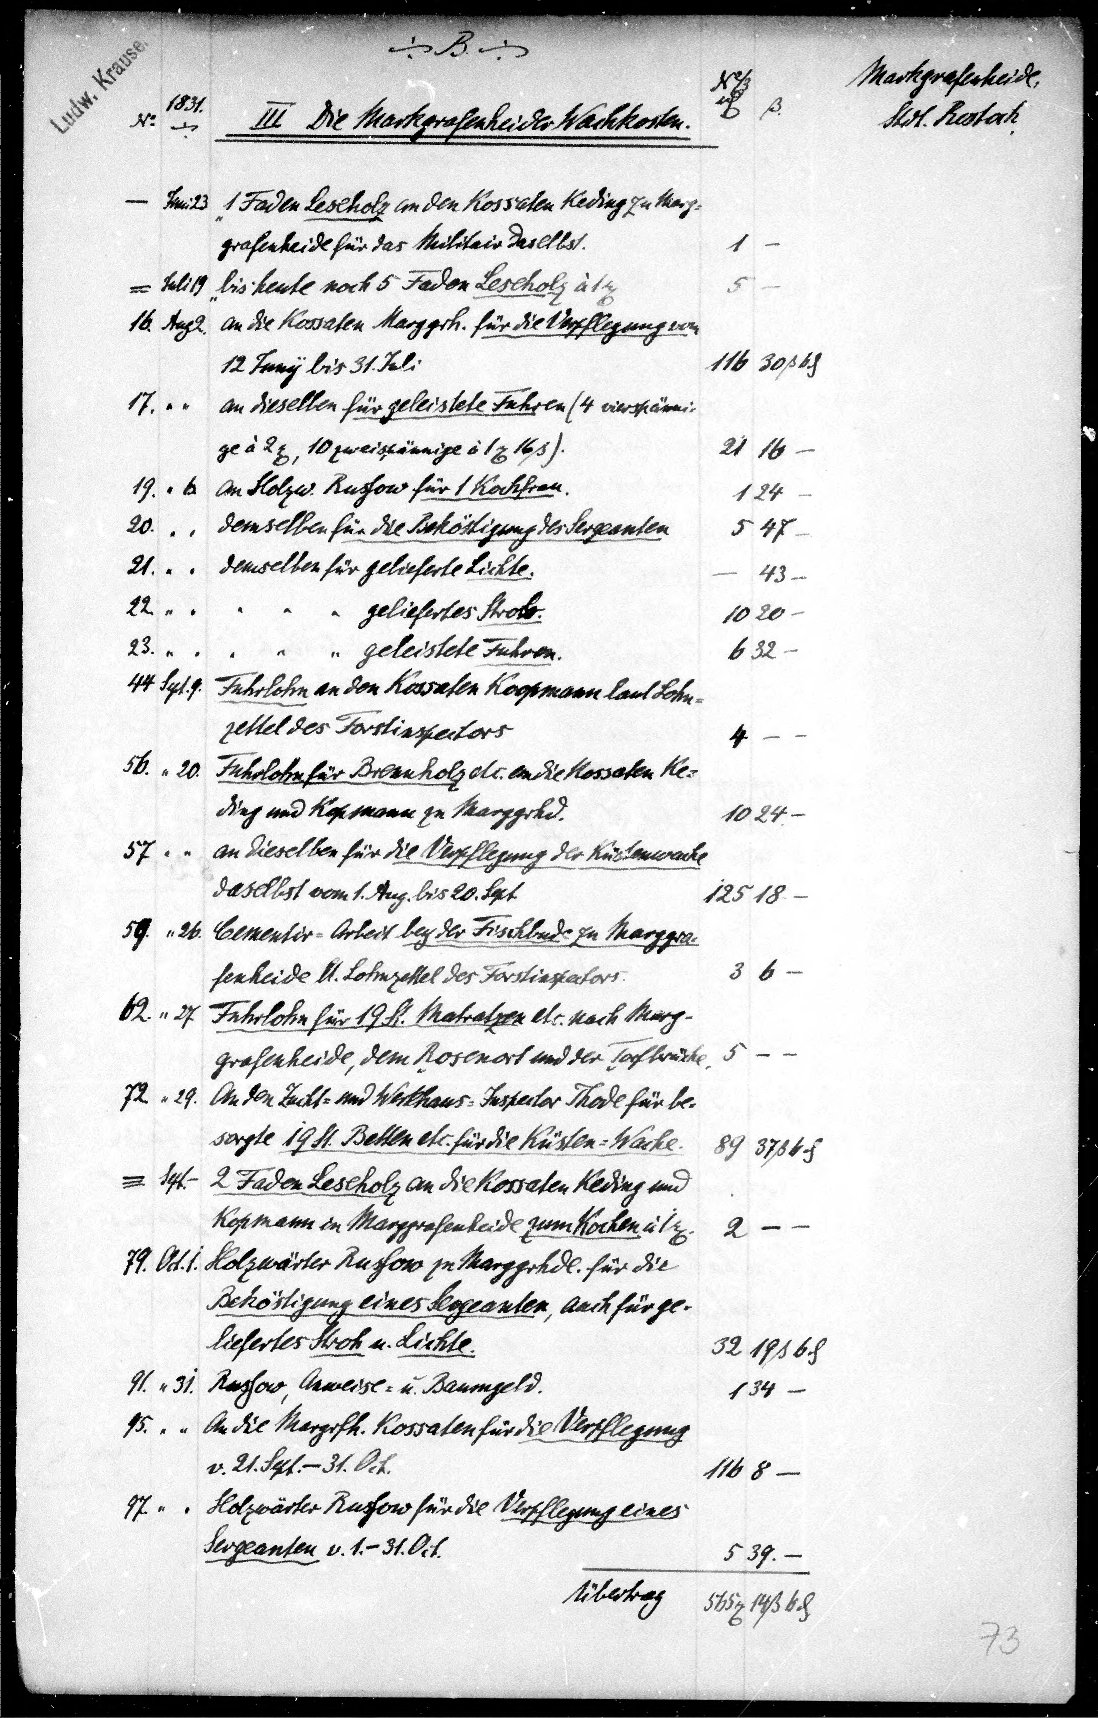 ÷ B. ÷
Ludw. Krause.
Markgrafenheide,
Stdt. Rostock.
No. 1831. III Die Markgrafenheider Wachkosten. N2/3 ß.
— Juni 23 „1 Faden Leseholz an den Kossaten Keding zu Marg=
grafenheide für das Militair daselbst. 1 —
= Juli 19 „bis heute noch 5 Faden Leseholz à 1 5 —
16. Aug 2. an die Kossaten Marggrh. für die Verpflegung vom
12 Juny bis 31. Juli 116 30 ß 6 ₰
17. " " an dieselben für geleistete Fuhren (4 vierspänni-
ge à 2, 10 zweispännige à 1 16 ß). 21 16 —
19. " 6 an Holzw. Russow für 1 Kochfrau. 1 24 —
20. " " demselben für die Beköstigung des Sergeanten 5 47 —
21. " " demselben für gelieferte Lichte. — 43 —
22. " " " " " geliefertes Stroh. 10 20 —
23. " " " " " geleistete Fuhren. 6 32 —
44 Spt. 9. Fuhrlohn an den Kossaten Koopmann laut Lohn=
zettel des Forstinspectors 4 — —
56. " 20. Fuhrlohn für Brennholz etc. an die Kossaten Ke=
ding und Kopmann zu Marggrhd. 10 24 —
57 " " an dieselben für die Verpflegung der Küstenwache
daselbst vom 1. Aug. bis 20. Sept 125 18 —
59. " 26. Cementir=Arbeit bey der Fischbude zu Marggra-
fenheide lt. Lohnzettel des Forstinspectors. 3 6 —
62. " 27 Fuhrlohn für 19 St. Matratzen etc. nach Marg-
grafenheide, dem Rosenort und der Torfbrücke. 5 — —
72. " 29. An den Zucht= und Werkhaus=Inspector Thode für be-
sorgte 19 St. Betten etc. für die Küsten=Wache. 89 37 ß 6 ₰
≡ Spt. — 2 Faden Leseholz an die Kossaten Keding und
Kopmann in Marggrafenheide zum Kochen à 1. 2 — —
79. Oct. 1. Holzwärter Russow zu Marggrhde. für die
Beköstigung eines Sergeanten, auch für ge-
liefertes Stroh u. Lichte. 32 19 ß 6 ₰
91. " 31. Russow, Anweise= u. Baumgeld. 1 34 —
95. " " An die Margrfh. Kossaten für die Verpflegung
v. 21. Sept. — 31. Oct. 116 8 —
97. " " Holzwärter Russow für die Verpflegung eines
Sergeanten v. 1. — 31. Oct. 5 39. —
Übertrag 565 14 ß 6 ₰
73